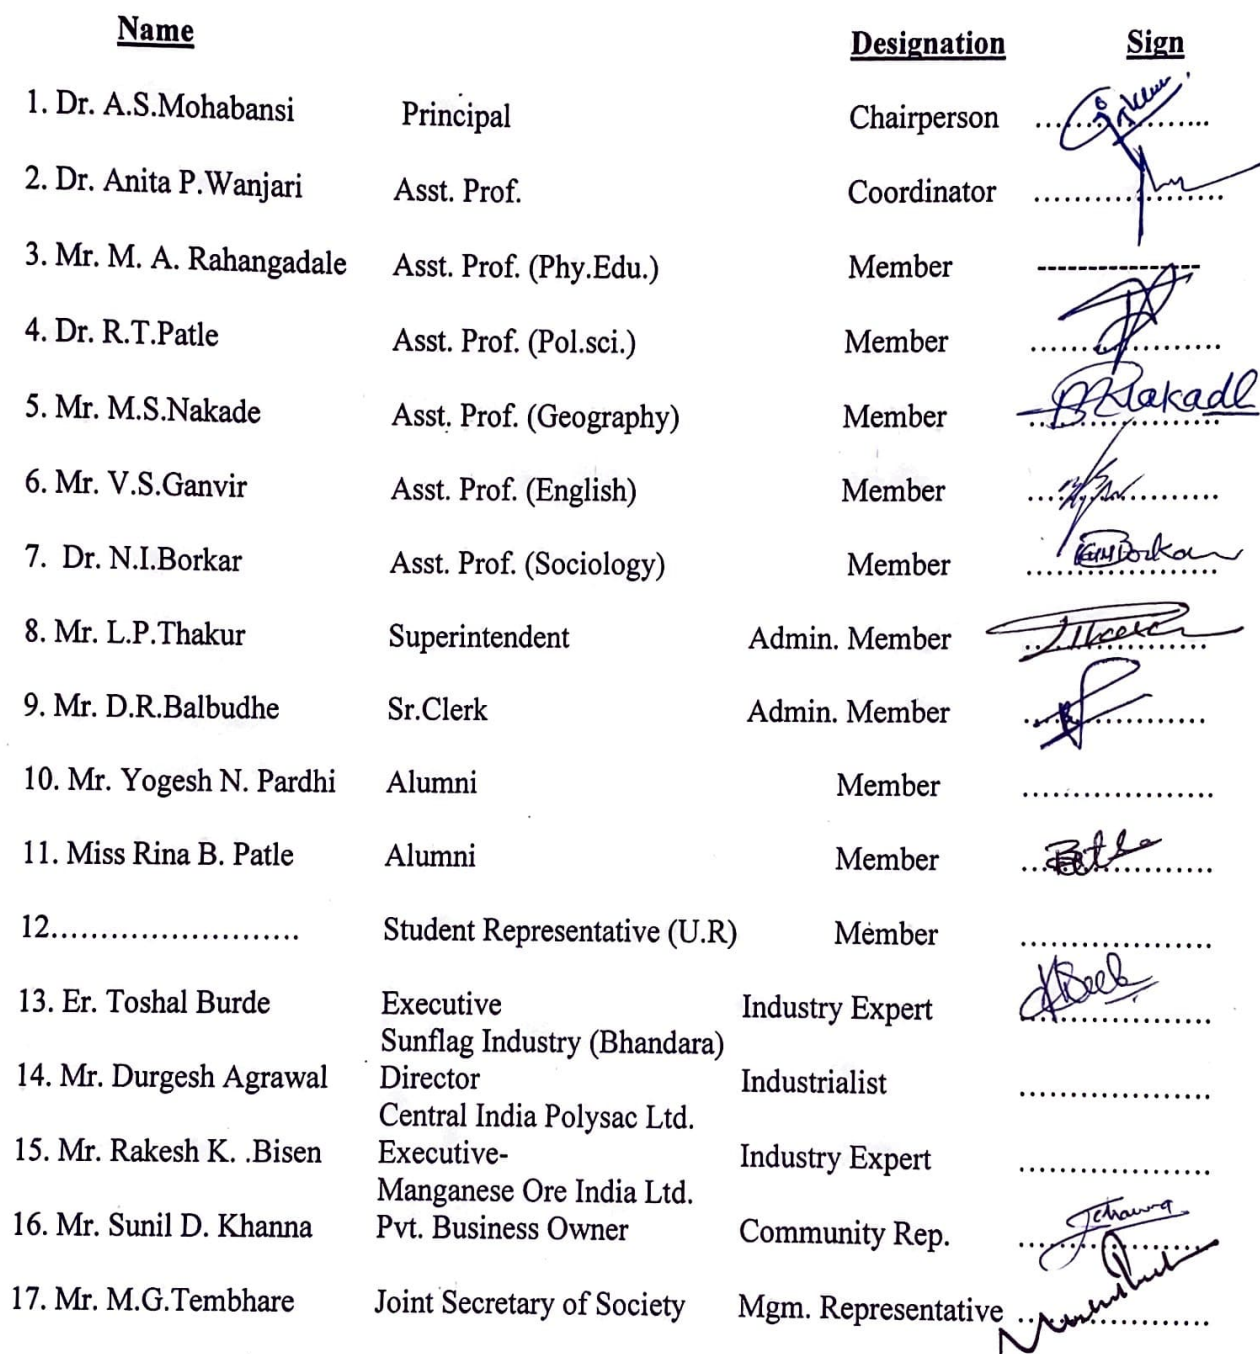 Name Designation Sign
1. Dr. A.S.Mohabansi Principal Chairperson ....................
2. Dr. Anita P.Wanjari Asst. Prof. Coordinator ....................
3. Mr. M. A. Rahangadale Asst. Prof. (Phy.Edu.) Member ----------------
4. Dr. R.T.Patle Asst. Prof. (Pol.sci.) Member ....................
5. Mr. M.S.Nakade Asst. Prof. (Geography) Member ....................
6. Mr. V.S.Ganvir Asst. Prof. (English) Member ....................
7. Dr. N.I.Borkar Asst. Prof. (Sociology) Member Borkar ....................
8. Mr. L.P.Thakur Superintendent Admin. Member ....................
9. Mr. D.R.Balbudhe Sr.Clerk Admin. Member ....................
10. Mr. Yogesh N. Pardhi Alumni Member ....................
11. Miss Rina B. Patle Alumni Member ....................
12......................... Student Representative (U.R) Member ....................
13. Er. Toshal Burde Executive Industry Expert ....................
Sunflag Industry (Bhandara)
14. Mr. Durgesh Agrawal Director Industrialist ....................
Central India Polysac Ltd.
15. Mr. Rakesh K. .Bisen Executive- Industry Expert ....................
Manganese Ore India Ltd.
16. Mr. Sunil D. Khanna Pvt. Business Owner Community Rep. ....................
17. Mr. M.G.Tembhare Joint Secretary of Society Mgm. Representative ....................